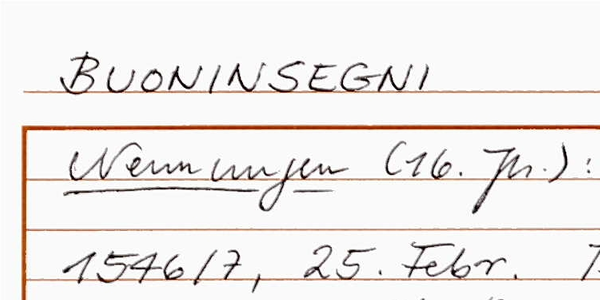 BUONINSEGNI
Nennungen (16. Jh.):
1546/7, 25. Febr.